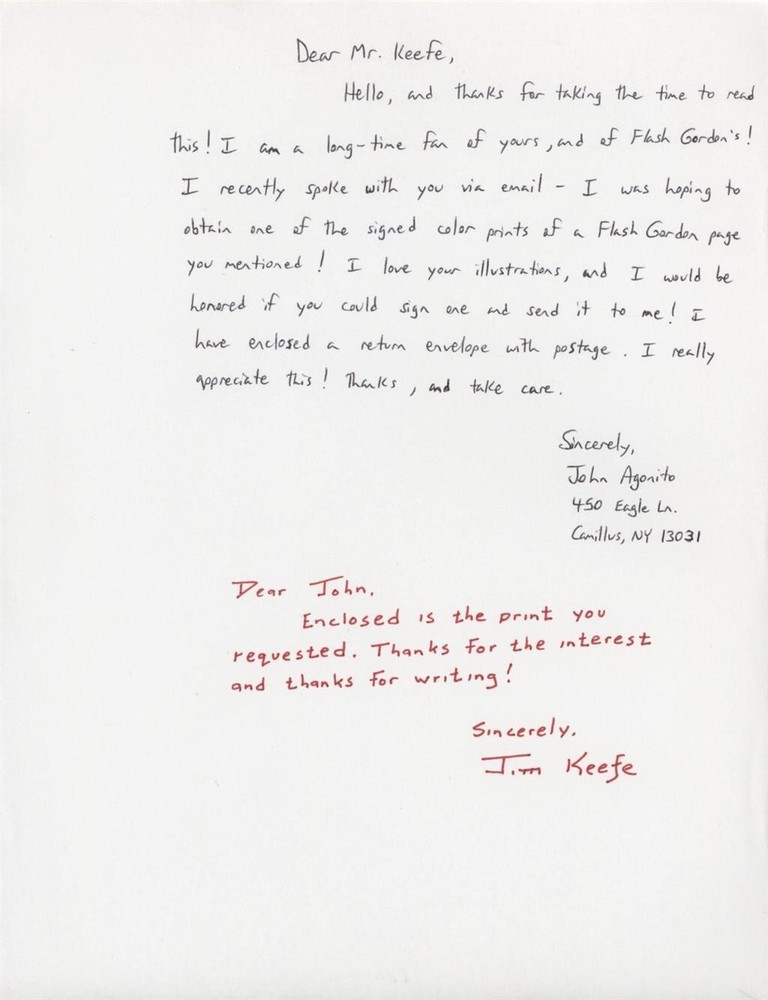 Dear Mr. Keefe,
Hello, and thanks for taking the time to read
this! I am a long-time fan of yours, and of Flash Gordon's!
I recently spoke with you via email - I was hoping to
obtain one of the signed color prints of a Flash Gordon page
you mentioned! I love your illustrations, and I would be
honored if you could sign one and send it to me! I
have enclosed a return envelope with postage. I really
appreciate this! Thanks, and take care.
Sincerely,
John Agonito
450 Eagle Ln.
Camillus, NY 13031
Dear John.
Enclosed is the print you
requested. Thanks for the interest
and thanks for writing!
Sincerely.
Jim Keefe